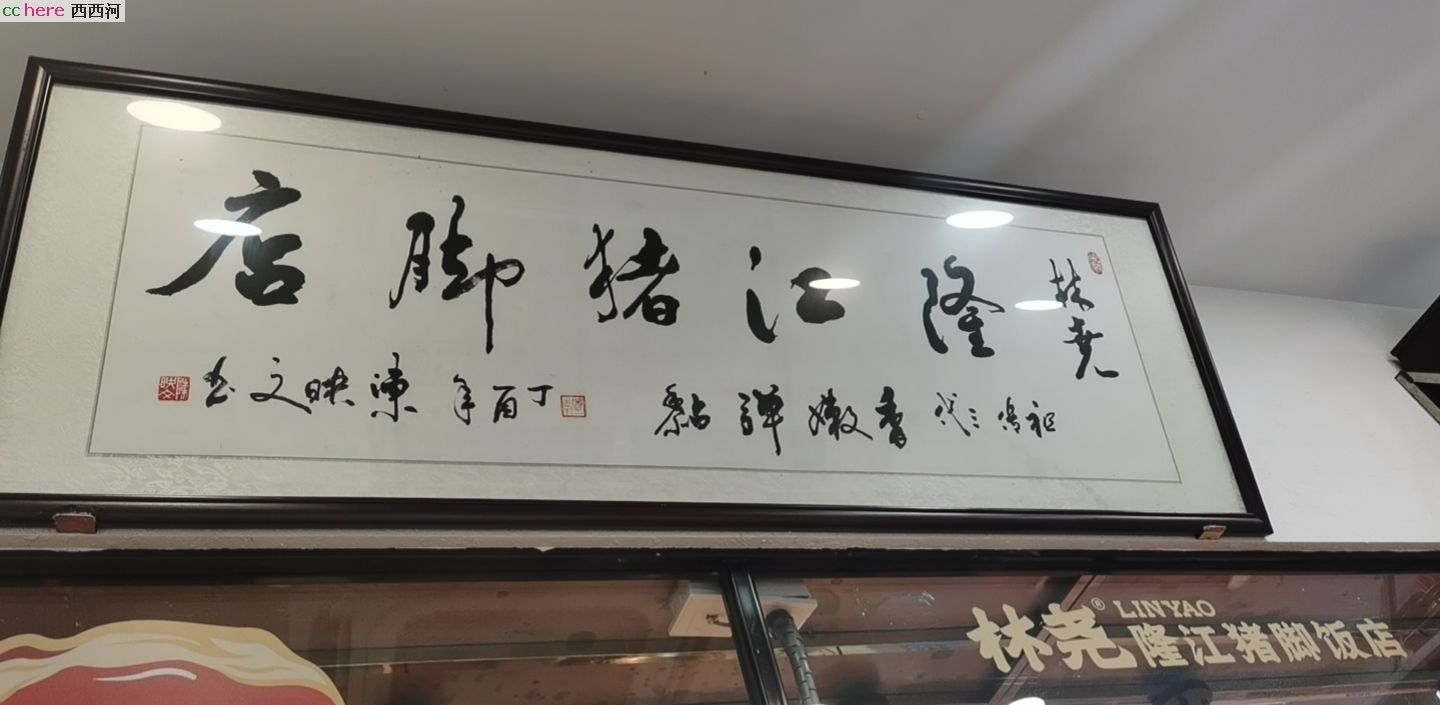 cchere 西西河
林堯
隆江猪脚店
祖傳三代
香嫩彈黏
丁酉年
陳映文书
林尧® LINYAO
隆江猪脚饭店